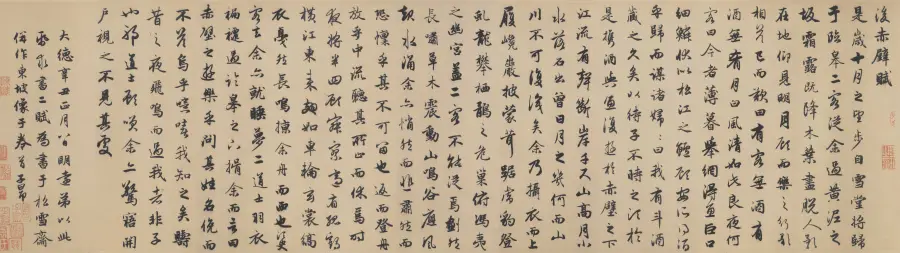 後赤壁賦
是歲十月之望步自雪堂將歸
于臨皋二客從余過黃泥之
坂霜露既降木葉盡脫人影
在地仰見明月顧而樂之行歌
相答已而歎曰有客無酒有
酒無肴月白風清如此良夜何
客曰今者薄暮舉網得魚巨口
細鱗狀似松江之鱸顧安所得酒
乎歸而謀諸婦婦曰我有斗酒
藏之久矣以待子不時之須於
是攜酒與魚復遊於赤壁之下
江流有聲斷岸千尺山高月小
水落石出曾日月之幾何而山
川不可復識矣余乃攝衣而上
履巉巖披蒙茸踞虎豹登
虬龍攀栖鶻之危巢俯馮夷
之幽宮蓋二客不能從焉劃然
長嘯草木震動山鳴谷應風
起水涌余亦悄然而悲肅然而
恐凜乎其不可留也返而登舟
放乎中流聽其所止而休焉時
夜將半四顧寂寥適有孤鶴
橫江東來翅如車輪玄裳縞
衣戛然長鳴掠余舟而西也須臾
客去余亦就睡夢二道士羽衣
褊褼過臨皋之下揖余而言曰
赤壁之遊樂乎問其姓名俛而
不答嗚乎噫嘻我知之矣疇
昔之夜飛鳴而過我者非子
也邪道士顧笑余亦驚寤開
戶視之不見其處
大德辛丑正月八日明遠弟以此
紙求書二賦為書于松雪齋
併作東坡像于卷首子昂